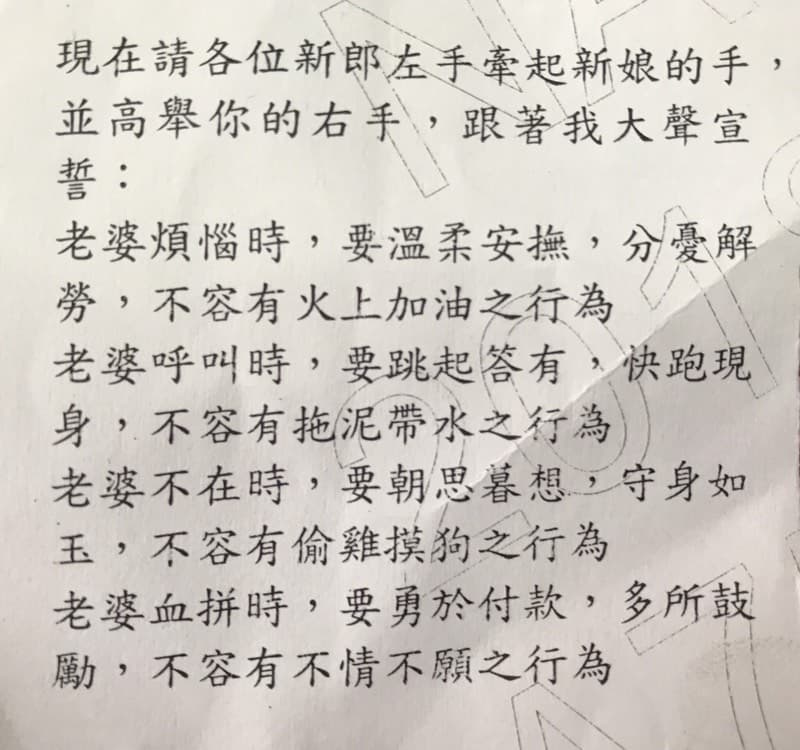 現在請各位新郎左手牽起新娘的手，
並高舉你的右手，跟著我大聲宣
誓：
老婆煩惱時，要溫柔安撫，分憂解
勞，不容有火上加油之行為
老婆呼叫時，要跳起答有，快跑現
身，不容有拖泥帶水之行為
老婆不在時，要朝思暮想，守身如
玉，不容有偷雞摸狗之行為
老婆血拼時，要勇於付款，多所鼓
勵，不容有不情不願之行為